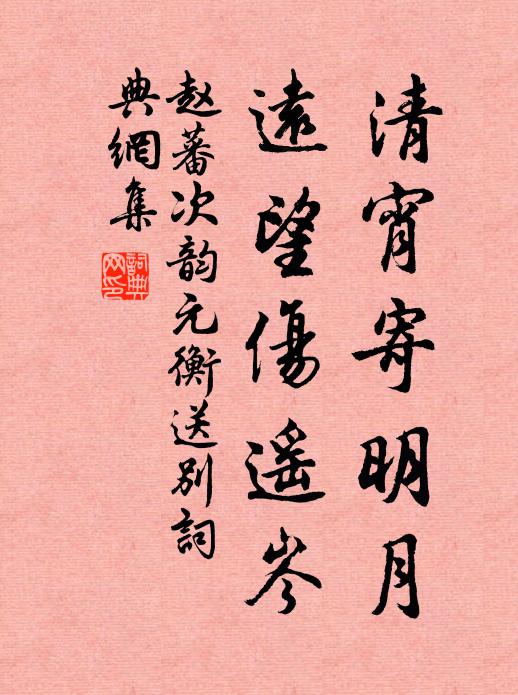 清宵寄明月
遠望傷遥岑
赵蕃次韵元衡送别詞
典網集
詞典網印